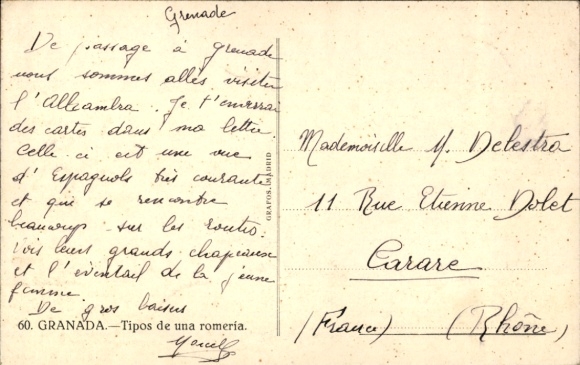 Grenade
De passage à grenade
nous sommes allés visiter
l'Alhambra. Je t'enverrai
des cartes dans ma lettre.
Celle ci est une vue
d'Espagnols très courante
et qui se rencontre
beaucoup sur les routes.
vois leurs grands chapeaux
et l'éventail de la jeune
femme.
De gros baisers
60. GRANADA.—Tipos de una romería.
GRAFOS.MADRID
Mademoiselle Delestra
11 Rue Etienne Dolet
Carare
(France) (Rhône)